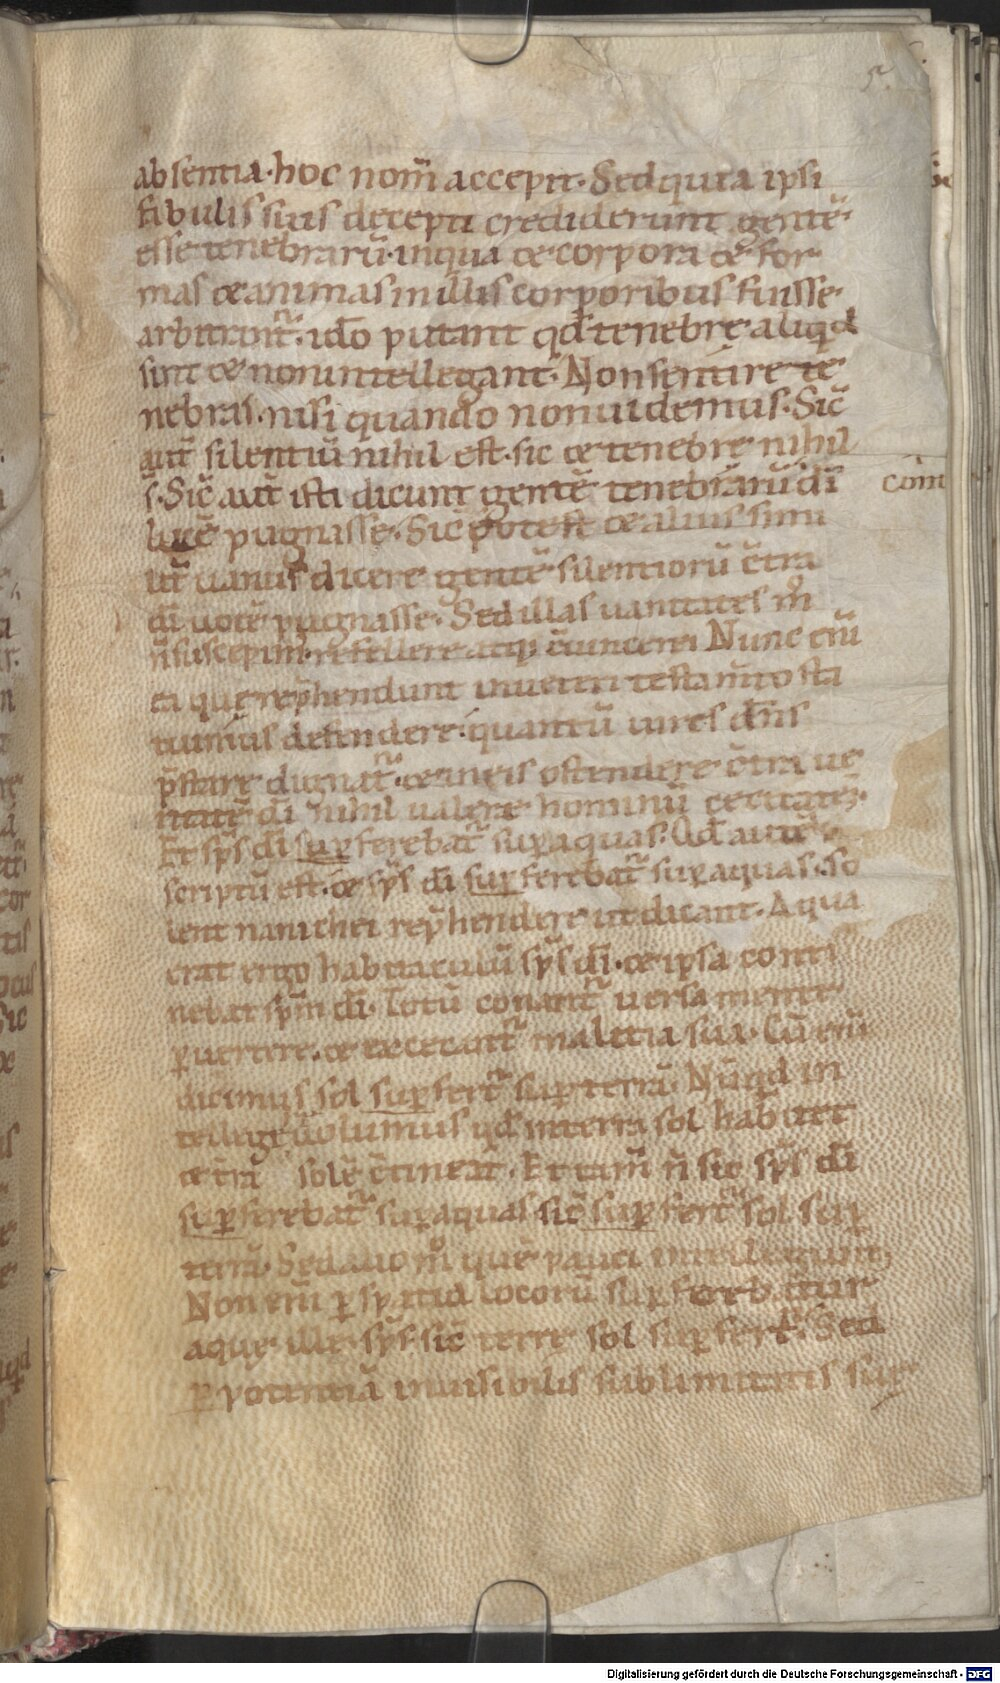 5
absentia·hoc nom̄ accepit·Sed quia ipsi
fabulis suis decepti crediderunt gentē·
esse tenebrarū·in qua & corpora & for
mas & animas in illis corporibus fuisse·
arbitrant̄·ido̅ putant qd̄ tenebre aliqd
sint & non intellegant·Non sentire te
nebras·nisi quando non uidemus·Sic̄
aut̄ silentiū nihil est·sic & tenebre nihil
s̄·Sic̄ aut̄ isti dicunt gentē tenebrarū dī
com̄
lucē pugnasse·Sic̄ potest & alius simi
lit̄ uanus dicere gentē silentiorū c̄tra
dī uocē pugnasse·Sed illas uanitates m̊
n̄ suscepim·refellere atq; c̄uincere Nunc eni̅
ea que rep̄hendunt in ueteri testam̄to sta
tuimus defendere·quantū uires dn̄s
p̄stare dignat̄·& in eis ostendere c̄tra ue
ritatē dī nihil ualere hominū cecitatē·
Et sp̄s dī sup ferebat̄ sup aquas·Qd̄ autē
scriptū est·& sp̄s dī sup ferebat̄ sup aquas·so
lent manichei rep̄hendere ut dicant·Aqua
erat ergo habitaculū sp̄s dī·& ipsa conti
nebat sp̄m dī·Totū conant̄ uersa mente
p uertere·& excecant̄ malitia sua·Cū eni̅
dicimus sol sup fert̄ sup terrā·Nūqd in
tellegi uolumus qd̄ in terra sol habitet
& t̄rā solē c̄tineat·Et tam̄ n̄ sic sp̄s dī
sup ferebat̄ sup aquas sic̄ sup fert̄ sol sup
terrā·Sed alio m̊ quē pauci intellegunt·
Non eni̅ p spatia locorū sup ferebatur
aque·ille sp̄s·sic̄ terre sol sup fert̄·Sed
p potentiā inuisibilis sublimitatis sue
Digitalisierung gefördert durch die Deutsche Forschungsgemeinschaft - DFG